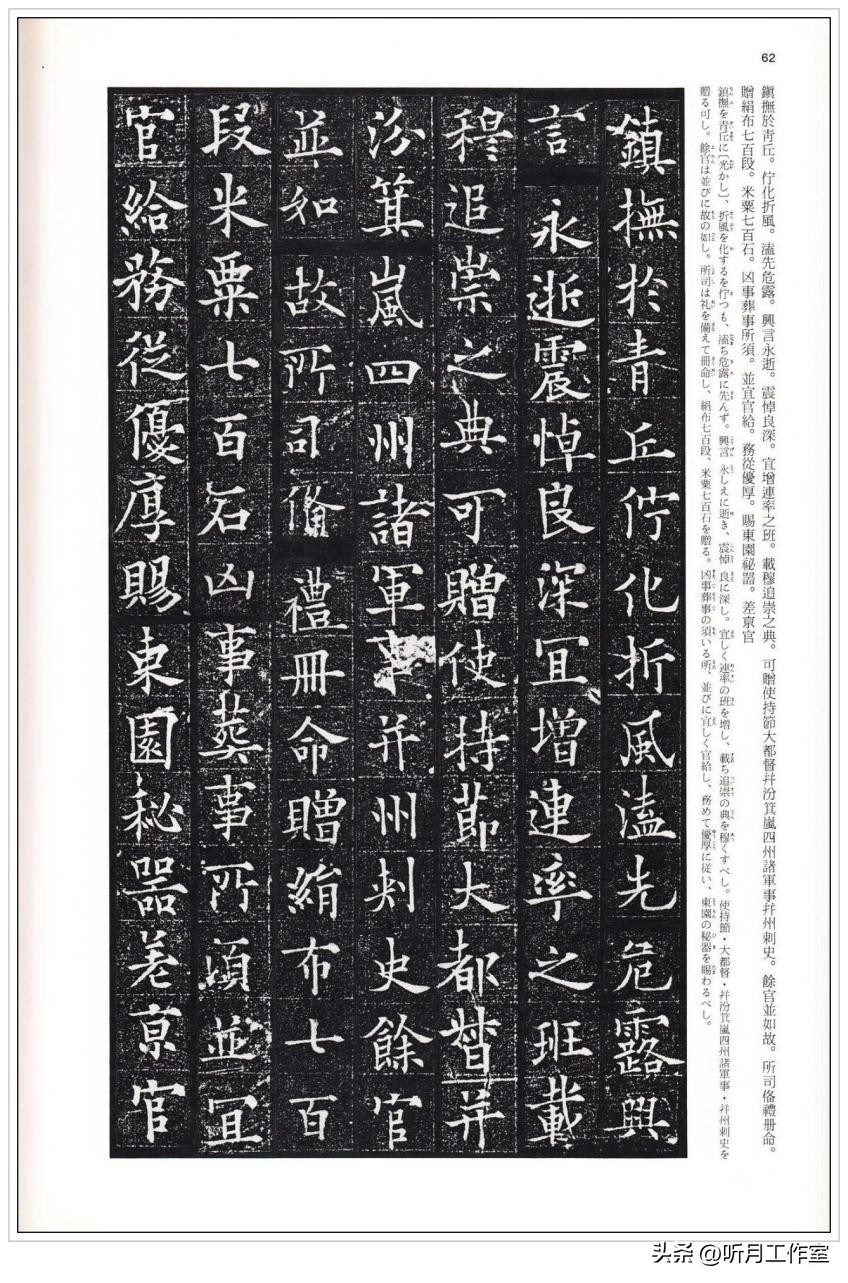 62
鎭撫於靑丘。佇化折風。溘先危露。興言永逝。震悼良深。宜增連率之班。載穆追崇之典。可贈使持節大都督幷汾箕嵐四州諸軍事幷州刺史。餘官並如故。所司俻禮册命。
贈絹布七百段。米粟七百石。凶事葬事所須。並宜官給。務從優厚。賜東園祕器。差京官
鎮撫を青丘に〔光かし〕、折風を化するを佇つも、溘ち危露に先んず。興言 永しえに逝き、震悼 良に深し。宜しく連率の班を増し、載ち追崇の典を穆くすべし。使持節・大都督・幷汾箕嵐四州諸軍事・幷州刺史を
贈る可し。餘官は並びに故の如し。所司は礼を備えて冊命し、絹布七百段、米粟七百石を贈る。凶事葬事の須いる所、並びに宜しく官給し、務めて優厚に従い、東園の秘器を賜わるべし。
鎮撫於青丘佇化折風溘先危露興
言永逝震悼良深冝增連率之班載
穆追崇之典可贈使持節大都督并
汾箕嵐四州諸軍事并州刺史餘官
並如故所司俻禮冊命贈絹布七百
段米粟七百石凶事葬事所須並冝
官給務從優厚賜東園秘器差京官
头条 @听月工作室